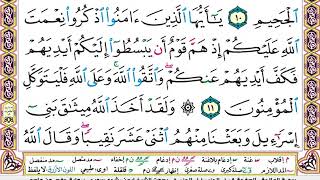 ٱلْجَحِيمِ ١٠ يَٰٓأَيُّهَا ٱلَّذِينَ ءَامَنُوا۟ ٱذْكُرُوا۟ نِعْمَتَ
ٱللَّهِ عَلَيْكُمْ إِذْ هَمَّ قَوْمٌ أَن يَبْسُطُوٓا۟ إِلَيْكُمْ أَيْدِيَهُمْ
فَكَفَّ أَيْدِيَهُمْ عَنكُمْ وَٱتَّقُوا۟ ٱللَّهَ وَعَلَى ٱللَّهِ فَلْيَتَوَكَّلِ
ٱلْمُؤْمِنُونَ ١١ وَلَقَدْ أَخَذَ ٱللَّهُ مِيثَٰقَ بَنِىٓ
إِسْرَٰٓءِيلَ وَبَعَثْنَا مِنْهُمُ ٱثْنَىْ عَشَرَ نَقِيبًا وَقَالَ ٱللَّهُ